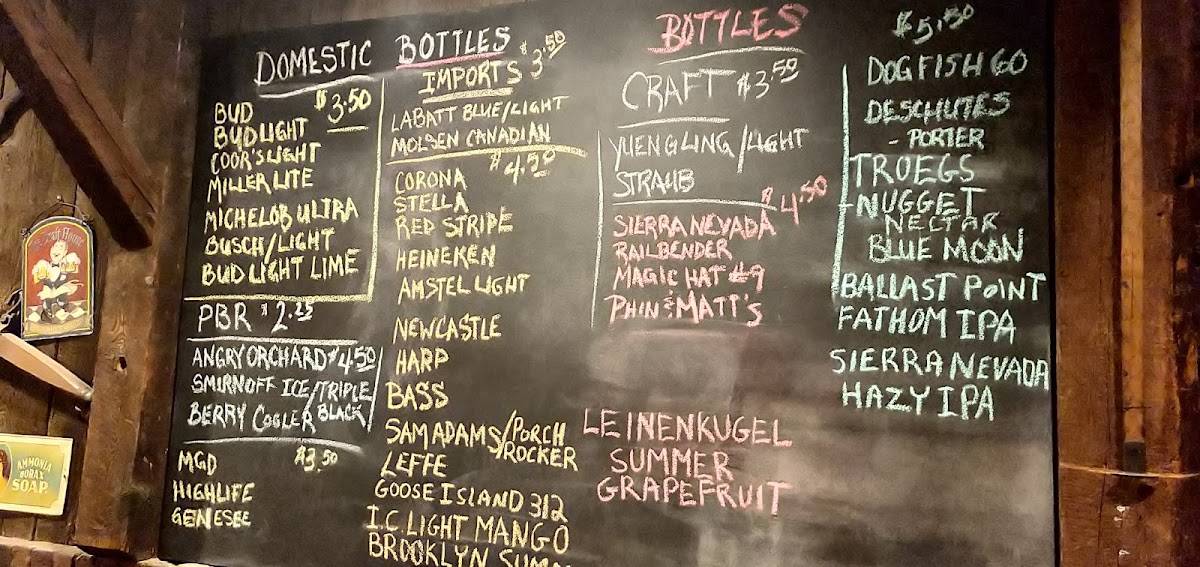 DOMESTIC BOTTLES
$3.50
BUD
BUD LIGHT
COOR'S LIGHT
MILLER LITE
MICHELOB ULTRA
BUSCH/LIGHT
BUD LIGHT LIME
PBR $2.25
ANGRY ORCHARD $4.50
SMIRNOFF ICE/TRIPLE
BLACK
BERRY COOLER
$3.50
MGD
HIGHLIFE
GENESEE
IMPORTS $3.50
LABATT BLUE/LIGHT
MOLSEN CANADIAN
$4.50
CORONA
STELLA
RED STRIPE
HEINEKEN
AMSTEL LIGHT
NEWCASTLE
HARP
BASS
SAM ADAMS/PORCH
ROCKER
LEFFE
GOOSE ISLAND 312
I.C. LIGHT MANGO
BROOKLYN
BOTTLES
CRAFT $3.50
YUENGLING/LIGHT
STRAUB
$4.50
SIERRA NEVADA
RAILBENDER
MAGIC HAT #9
PHIN & MATT'S
LEINENKUGEL
SUMMER
GRAPEFRUIT
$5.50
DOGFISH 60
DESCHUTES
- PORTER
TROEGS
-NUGGET
NECTAR
BLUE MOON
BALLAST POINT
FATHOM IPA
SIERRA NEVADA
HAZY IPA
AMMONIA
BORAX
SOAP